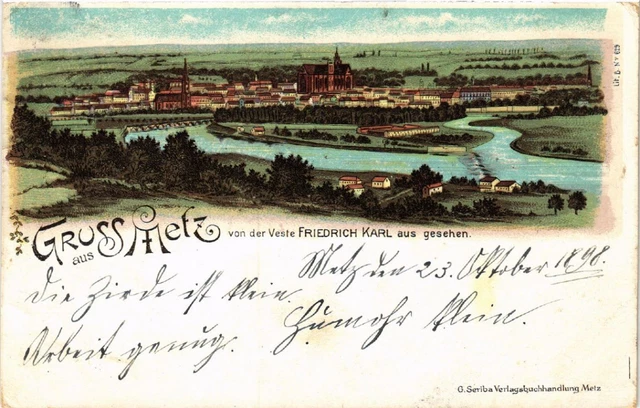 GRUSS aus Metz
von der Veste FRIEDRICH KARL aus gesehen.
Metz den 23. Oktober 1898.
Die Zirde ist klein.
Arbeit genug. Humohr klein.
G. Scriba Verlagsbuchhandlung Metz